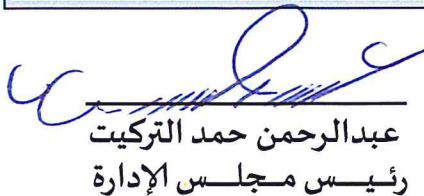 عبدالرحمن حمد التركيت
رئيس مجلس الإدارة